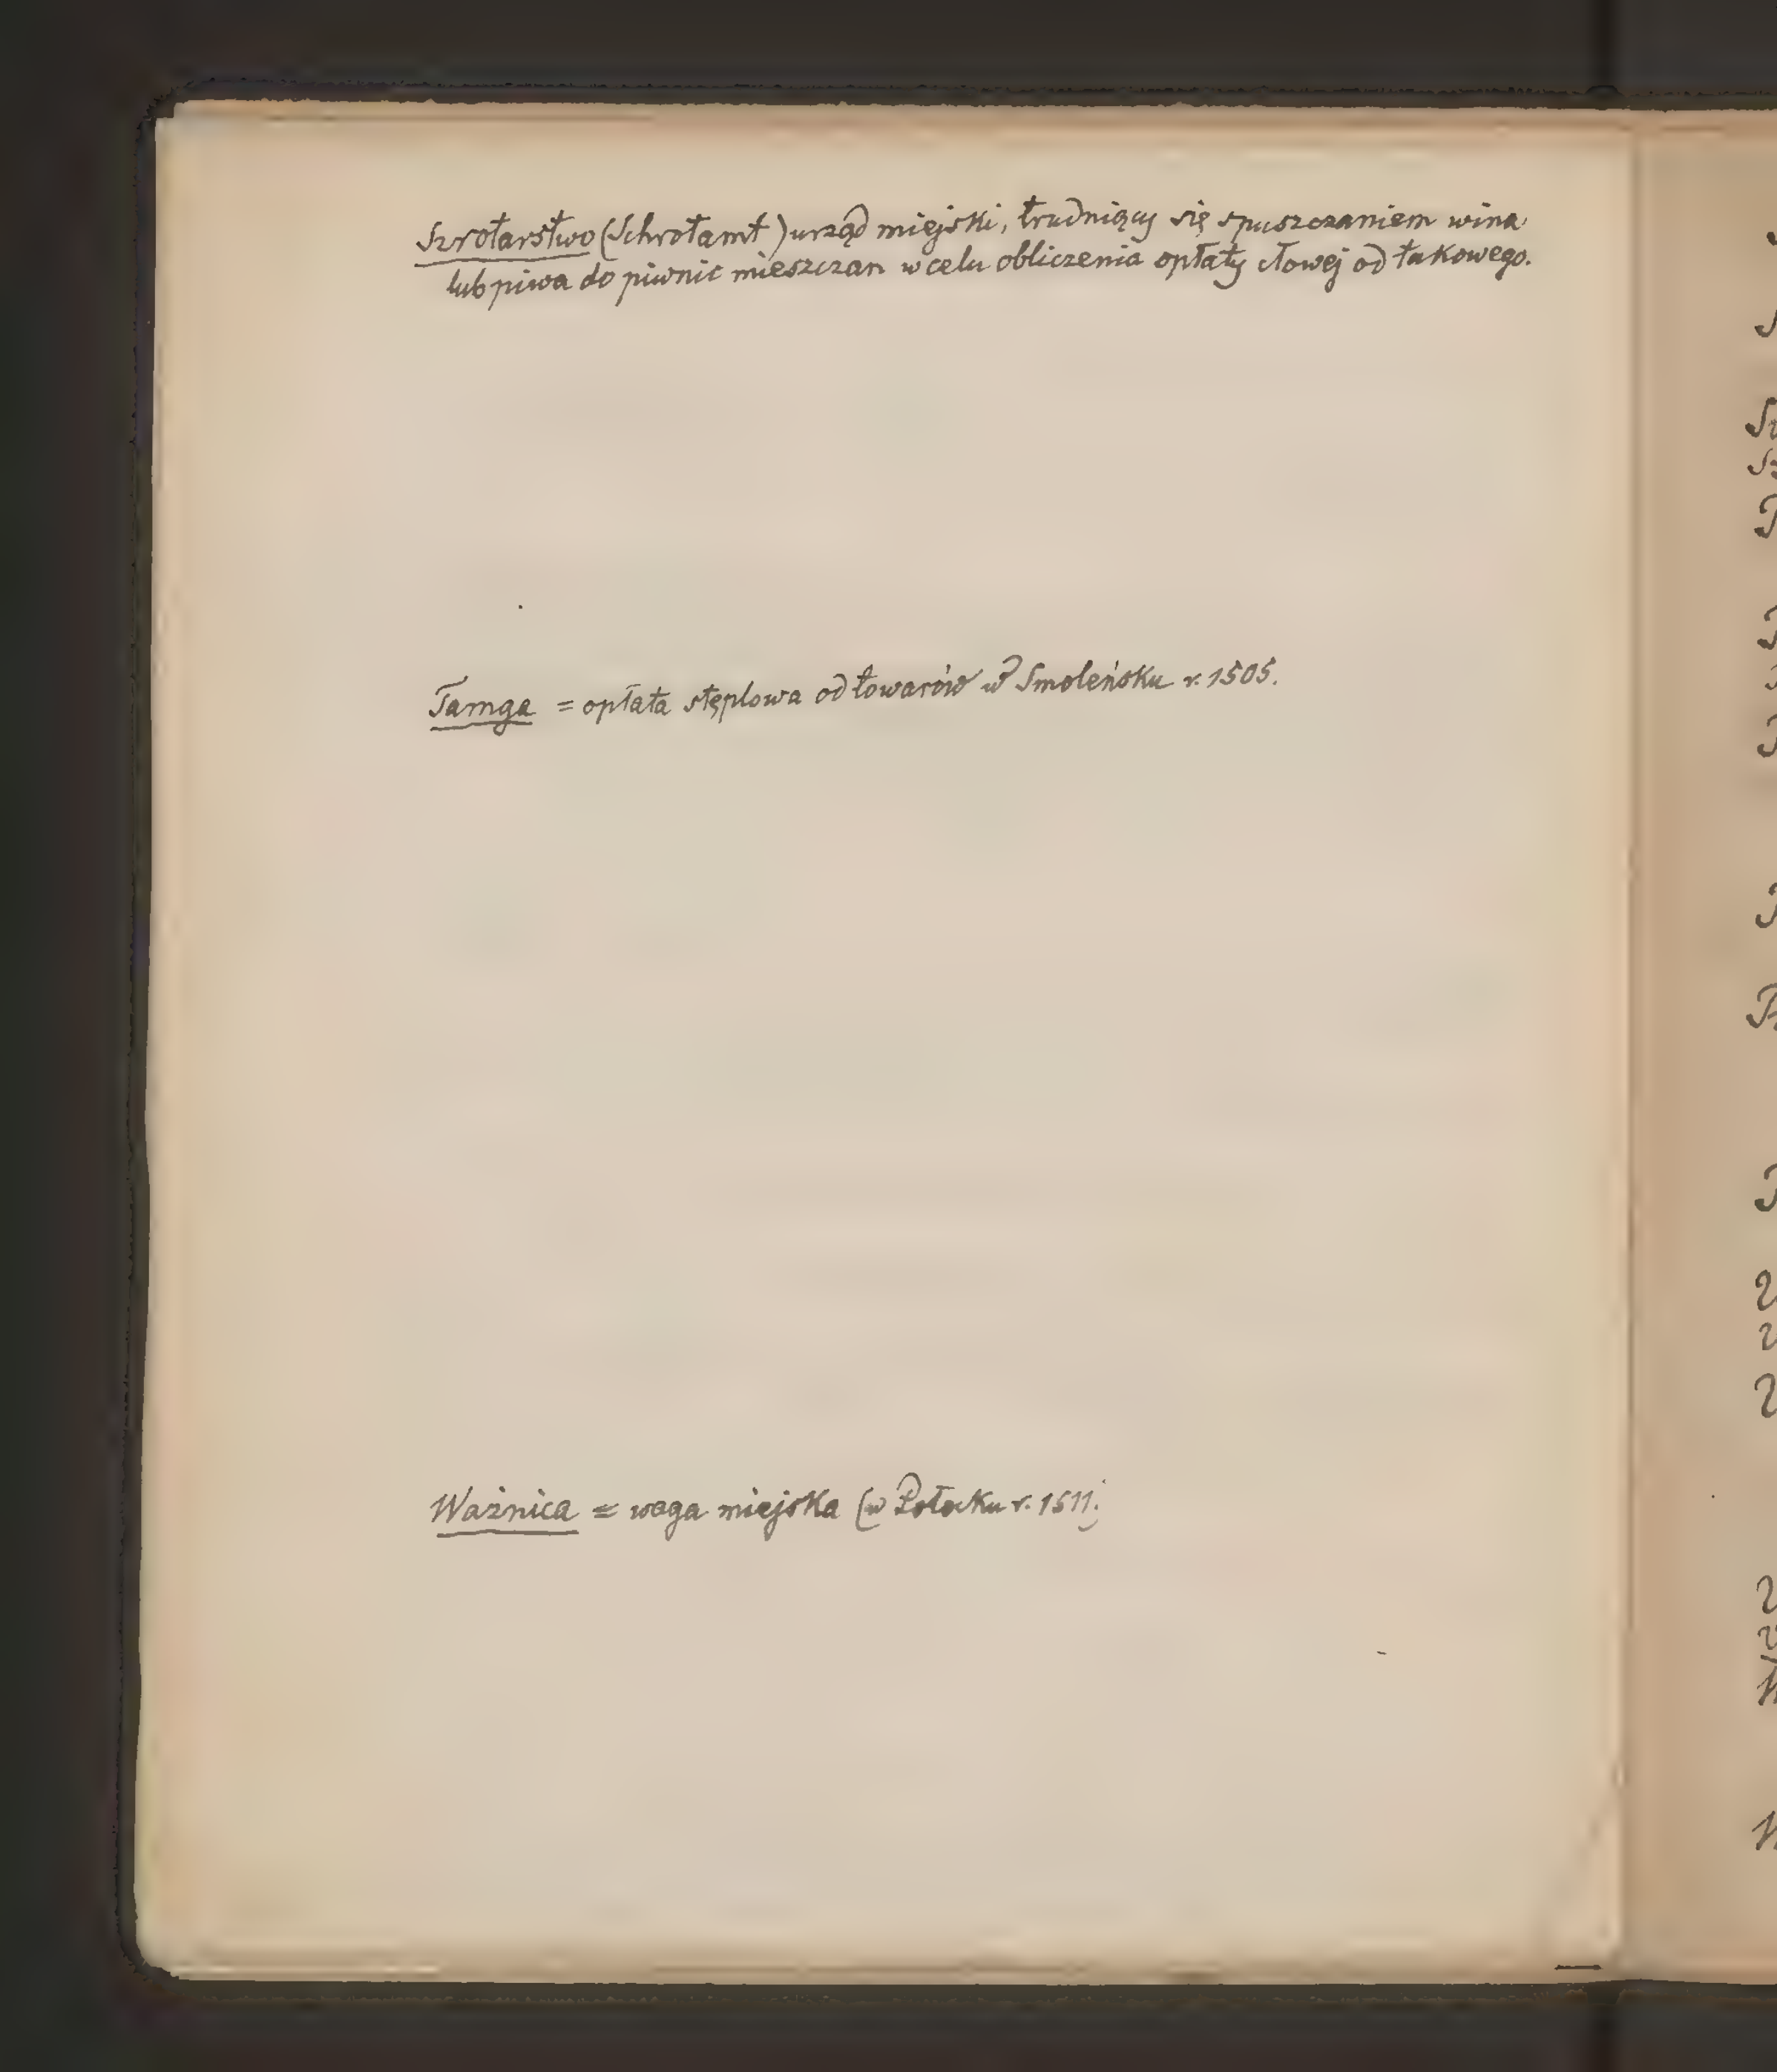 Szrotarstwo (Schrotamt) urząd miejski, trudniący się spuszczaniem wina
lub piwa do piwnic mieszczan w celu obliczenia opłaty cłowej od takowego.
Tamga = opłata stęplowa od towarów w Smoleńsku r. 1505.
Ważnica = waga miejska (w Połocku r. 1511)